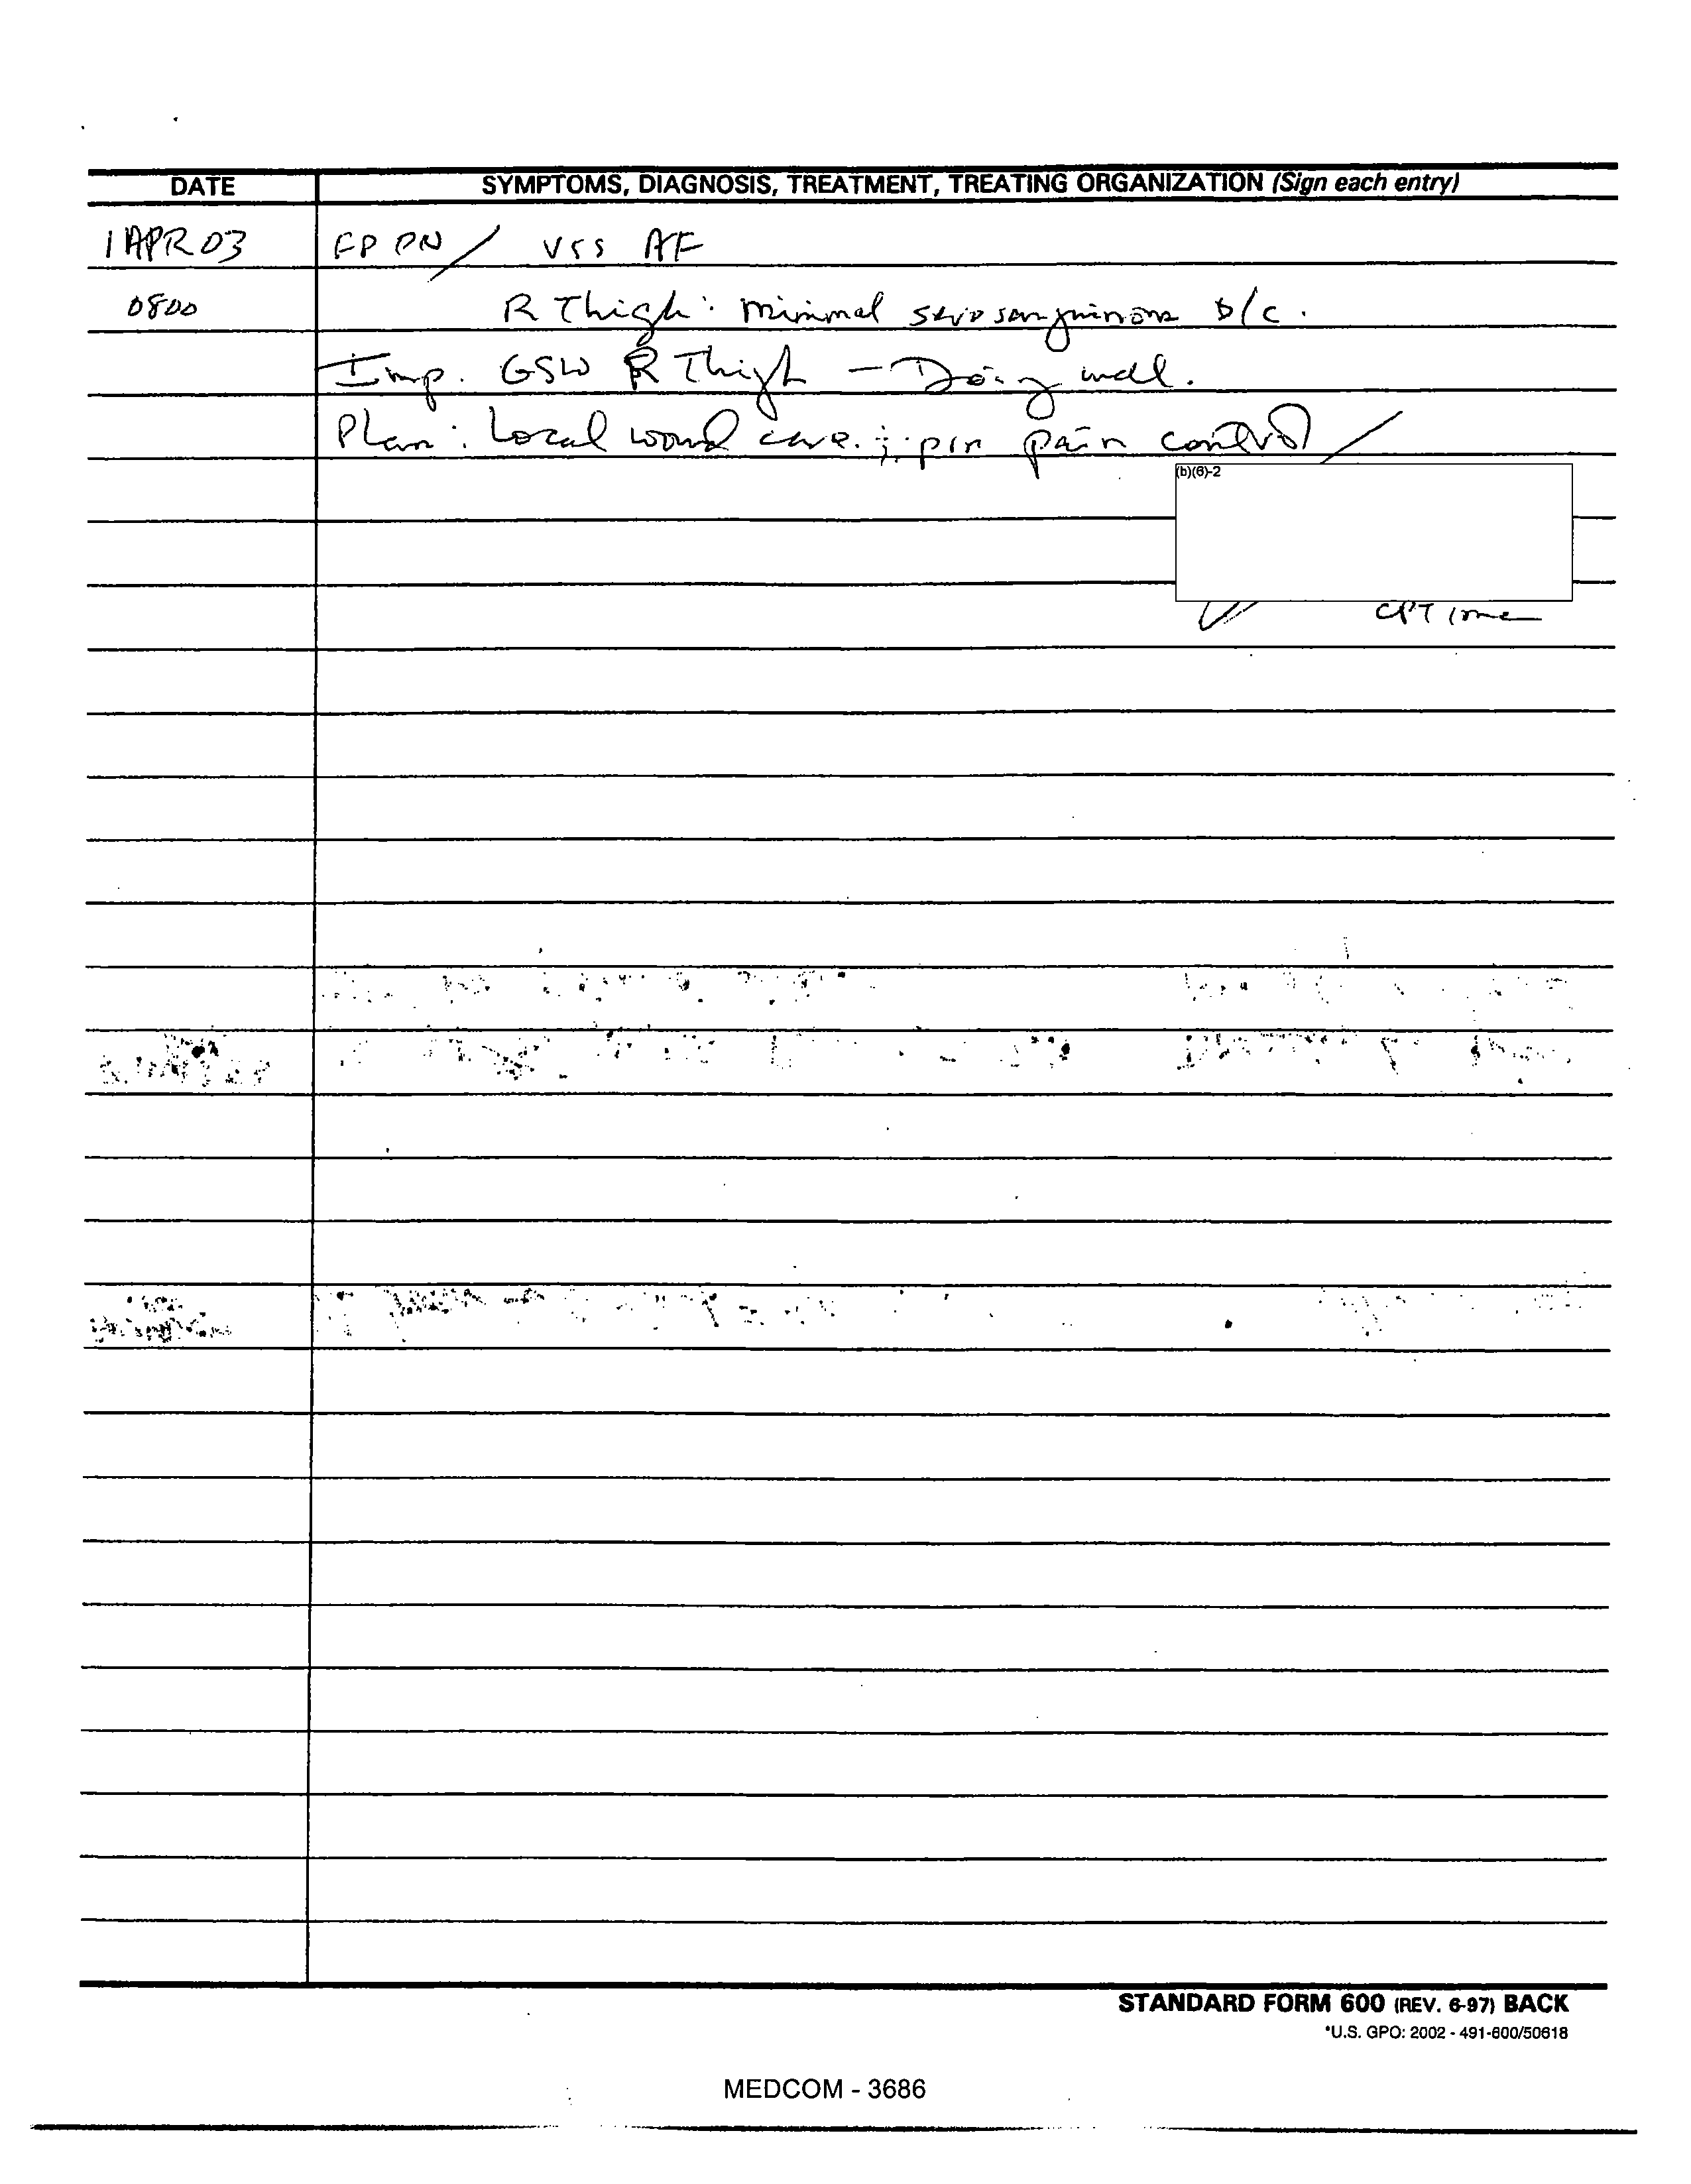 DATE SYMPTOMS, DIAGNOSIS, TREATMENT, TREATING ORGANIZATION (Sign each entry)
1 APR 03 FP PN / VSS AF
0800 R Thigh: minimal serosanguinous D/C.
Imp. GSW R Thigh - Doing well.
Plan: Local wound care; prn pain control /
(b)(6)-2
CPT
STANDARD FORM 600 (REV. 6-97) BACK
*U.S. GPO: 2002 - 491-600/50618
MEDCOM - 3686